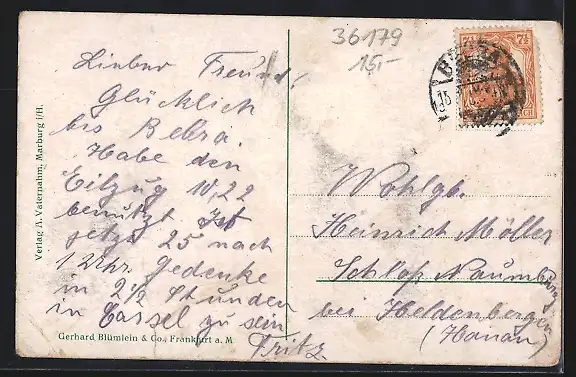 36179
15,-
BEBRA
7½
7½
Lieber Freund,
Glücklich
bis Bebra.
Habe den
Eilzug 10,22
benützt Ist
jetzt 25 nach
1 Uhr. Gedenke
in 2½ Stunden
in Cassel zu sein
Fritz
Wohlgb.
Heinrich Möller
Schloß Naumburg
bei Heldenbergen
(Hanau)
Verlag A. Vaternahm, Marburg i/H.
Gerhard Blümlein & Co., Frankfurt a. M